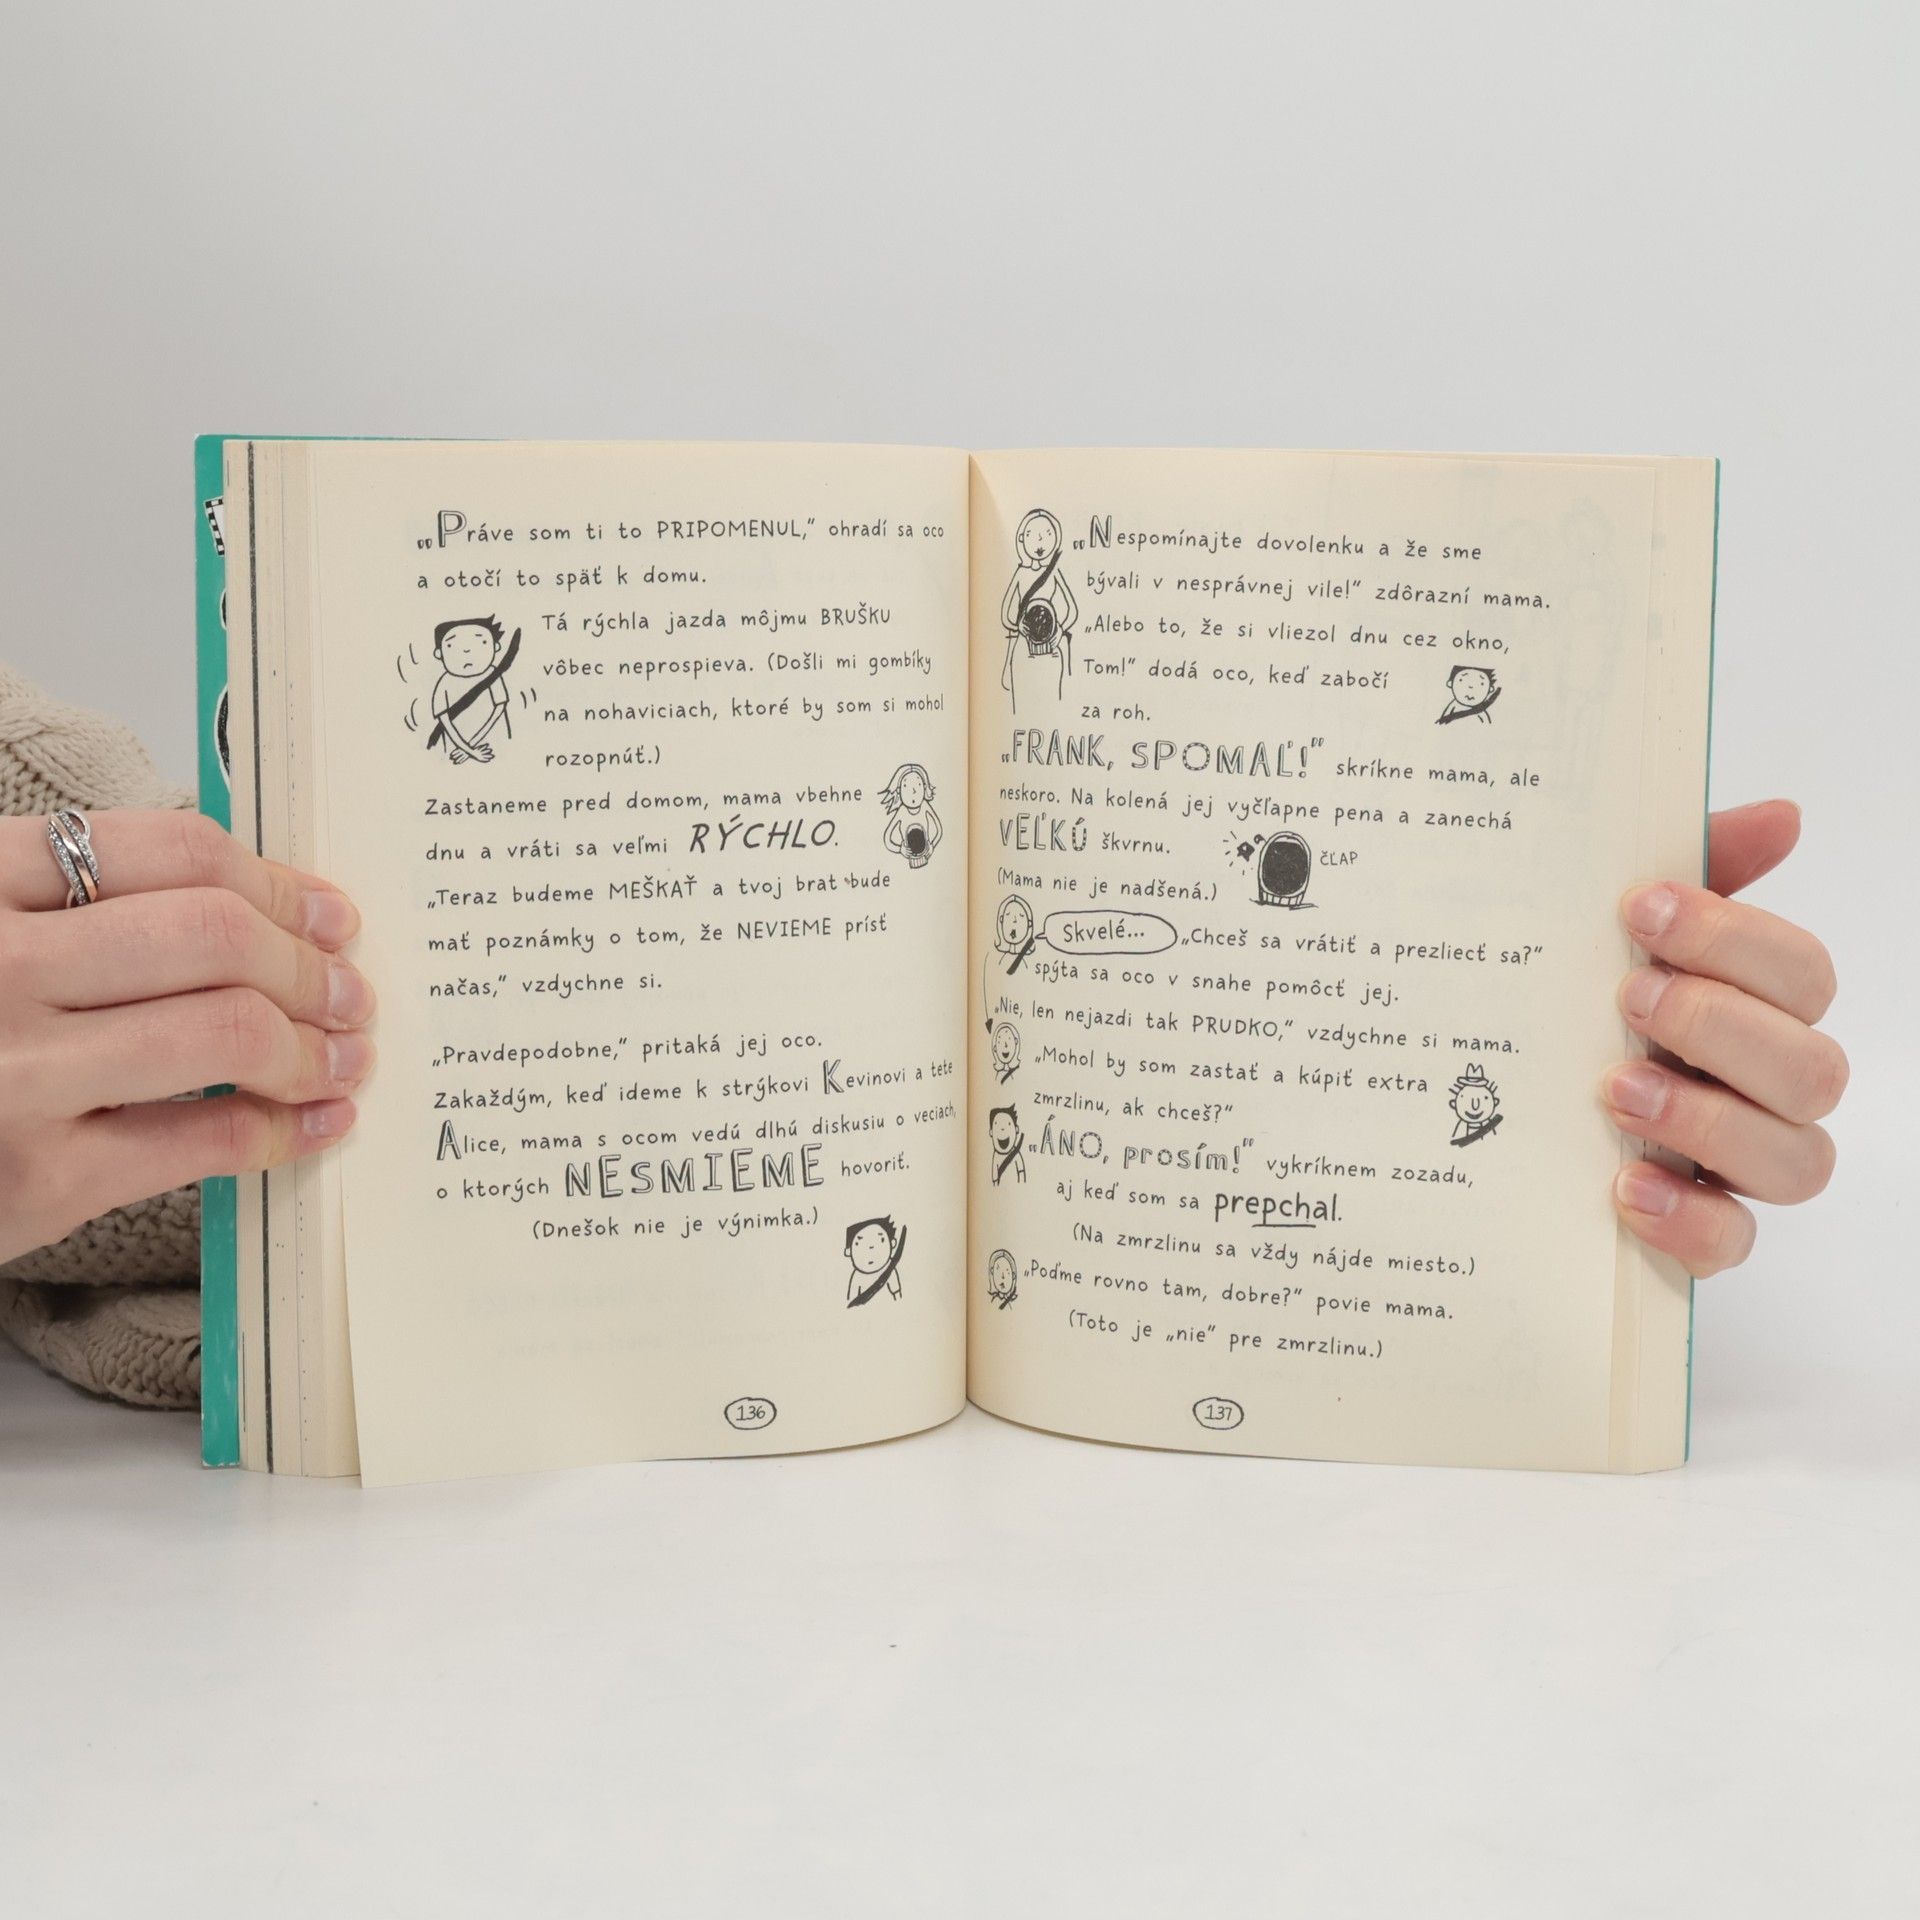 „Práve som ti to PRIPOMENUL,“ ohradí sa oco
a otočí to späť k domu.
Tá rýchla jazda môjmu BRUŠKU
vôbec neprospieva. (Došli mi gombíky
na nohaviciach, ktoré by som si mohol
rozopnúť.)
Zastaneme pred domom, mama vbehne
dnu a vráti sa veľmi RÝCHLO.
„Teraz budeme MEŠKAŤ a tvoj brat bude
mať poznámky o tom, že NEVIEME prísť
načas,“ vzdychne si.
„Pravdepodobne,“ pritaká jej oco.
Zakaždým, keď ideme k strýkovi Kevinovi a tete
Alice, mama s ocom vedú dlhú diskusiu o veciach,
o ktorých NESMIEME hovoriť.
(Dnešok nie je výnimka.)
136
„Nespomínajte dovolenku a že sme
bývali v nesprávnej vile!“ zdôrazní mama.
„Alebo to, že si vliezol dnu cez okno,
Tom!“ dodá oco, keď zabočí
za roh.
„FRANK, SPOMAĽ!“ skríkne mama, ale
neskoro. Na kolená jej vyčľapne pena a zanechá
VEĽKÚ škvrnu.
ČĽAP
(Mama nie je nadšená.)
Skvelé... „Chceš sa vrátiť a prezliecť sa?“
spýta sa oco v snahe pomôcť jej.
„Nie, len nejazdi tak PRUDKO,“ vzdychne si mama.
„Mohol by som zastať a kúpiť extra
zmrzlinu, ak chceš?“
„ÁNO, prosím!“ vykríknem zozadu,
aj keď som sa prepchal.
(Na zmrzlinu sa vždy nájde miesto.)
„Poďme rovno tam, dobre?“ povie mama.
(Toto je „nie“ pre zmrzlinu.)
137